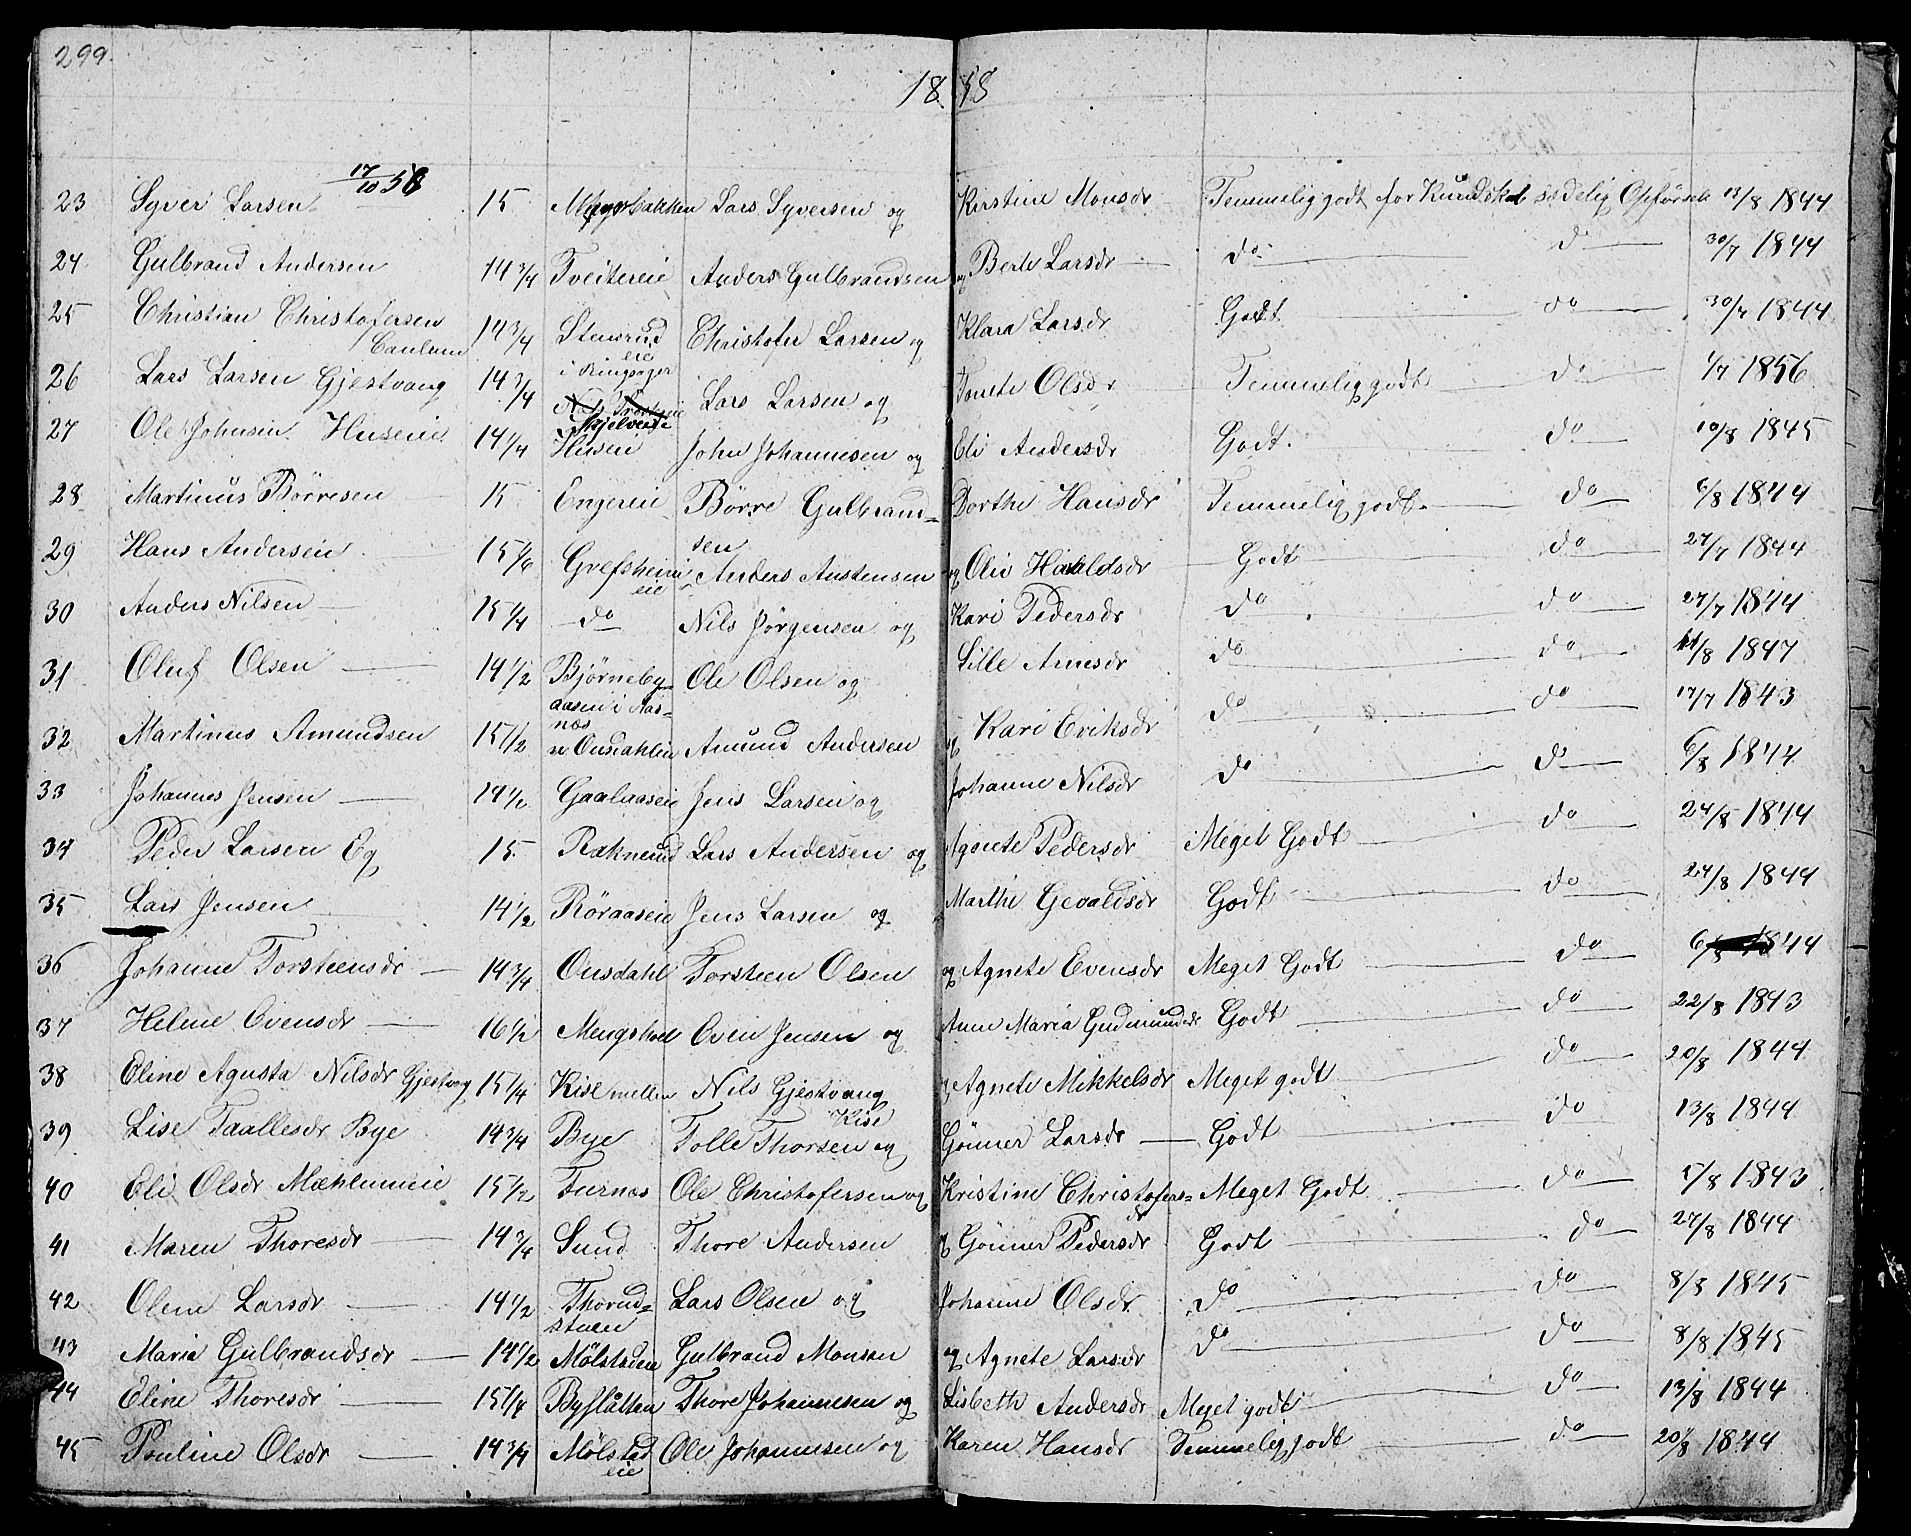 299.
18 58
17/10 58
23 Syver Larsen 15 Lars Syversen og Kirstine Monsdr Temmelig godt for Kundskab sædelig Opførsel 13/8 1844
24 Gulbrand Andersen 14 3/4 Tveitereie Anders Gulbrandsen og Berte Larsdr do do 30/7 1844
25 Christian Christofersen 14 3/4 Stensrud Christofer Larsen og Klara Larsdr Godt do 30/7 1844
eie
26 Lars Larsen Gjestvang 14 3/4 i Ringsager Lars Larsen og Olsdr Temmelig godt do 1/7 1856
27 Ole Johnsen Huseie 14 1/4 Huseie John Johannesen og Eli Andersdr Godt. do 10/8 1845
28 Martinus Börresen 15 Engereie Börre Gulbrand= Dorthe Hansdr Temmelig godt. do 6/8 1844
sen
29 Hans Andersen 15 1/6 Grefsheim Anders Austensen og Oliv Haraldsdr Godt do 27/7 1844
eie
30 Anders Nilsen 15 1/4 do Nils Jörgensen og Kari Pedersdr do do 27/7 1844
31 Oluf Olsen 14 1/2 Bjørneby Ole Olsen og Lille Arnesdr do do /8 1847
aasen i Aas=
nes
32 Martinus Amundsen 15 1/2 Onsdahlen Amund Andersen og Kari Eriksdr do do 17/7 1843
33 Johannes Jensen 14 1/2 Gaalaaseie Jens Larsen og Johanne Nilsdr do do 6/8 1844
34 Peder Larsen Eg 15 Raknerud Lars Andersen og Agnete Pedersdr Meget Godt do 24/8 1844
35 Lars Jensen 14 1/2 Röraaseie Jens Larsen og Marthe Gevaldsdr Godt do 24/8 1844
36 Johanne Torsteensdr 14 3/4 Onsdahl Torsteen Olsen og Agnete Evensdr Meget Godt do 6/8 1844
37 Helene Ovensdr 16 1/2 Mengshoel Oven Jensen og Anne Maria Gudmundsdr Godt do 22/8 1843
38 Eline Agusta Nilsdr Gjestvang 15 1/4 Kise mellem Nils Gjestvang og Agnete Mikkelsdr Meget godt do 20/8 1844
Kise
39 Lise Taallesdr Bye 14 3/4 Bye Tolle Thorsen og Gönner Larsdr Godt do 13/8 1844
40 Eli Olsdr Mæhlumeie 15 1/2 Furnes Ole Christofersen og Kristine Christofers= Meget Godt do 5/8 1843
dr
41 Maren Thoresdr 14 3/4 Sund Thore Andersen og Gönner Pedersdr Godt do 27/8 1844
42 Olene Larsdr 14 1/2 Thorud= Lars Olsen og Johanne Olsdr do do 8/8 1845
stuen
43 Maria Gulbrandsdr 14 1/2 Mölstaden Gulbrand Monsen og Agnete Larsdr do do 8/8 1845
44 Eline Thoresdr 15 1/4 Byflåtten Thore Johannesen og Lisbeth Andersdr Meget godt do 13/8 1844
45 Pouline Olsdr 14 3/4 Mölstad Ole Johannesen og Karen Hansdr Temmelig godt do 20/8 1844
eie